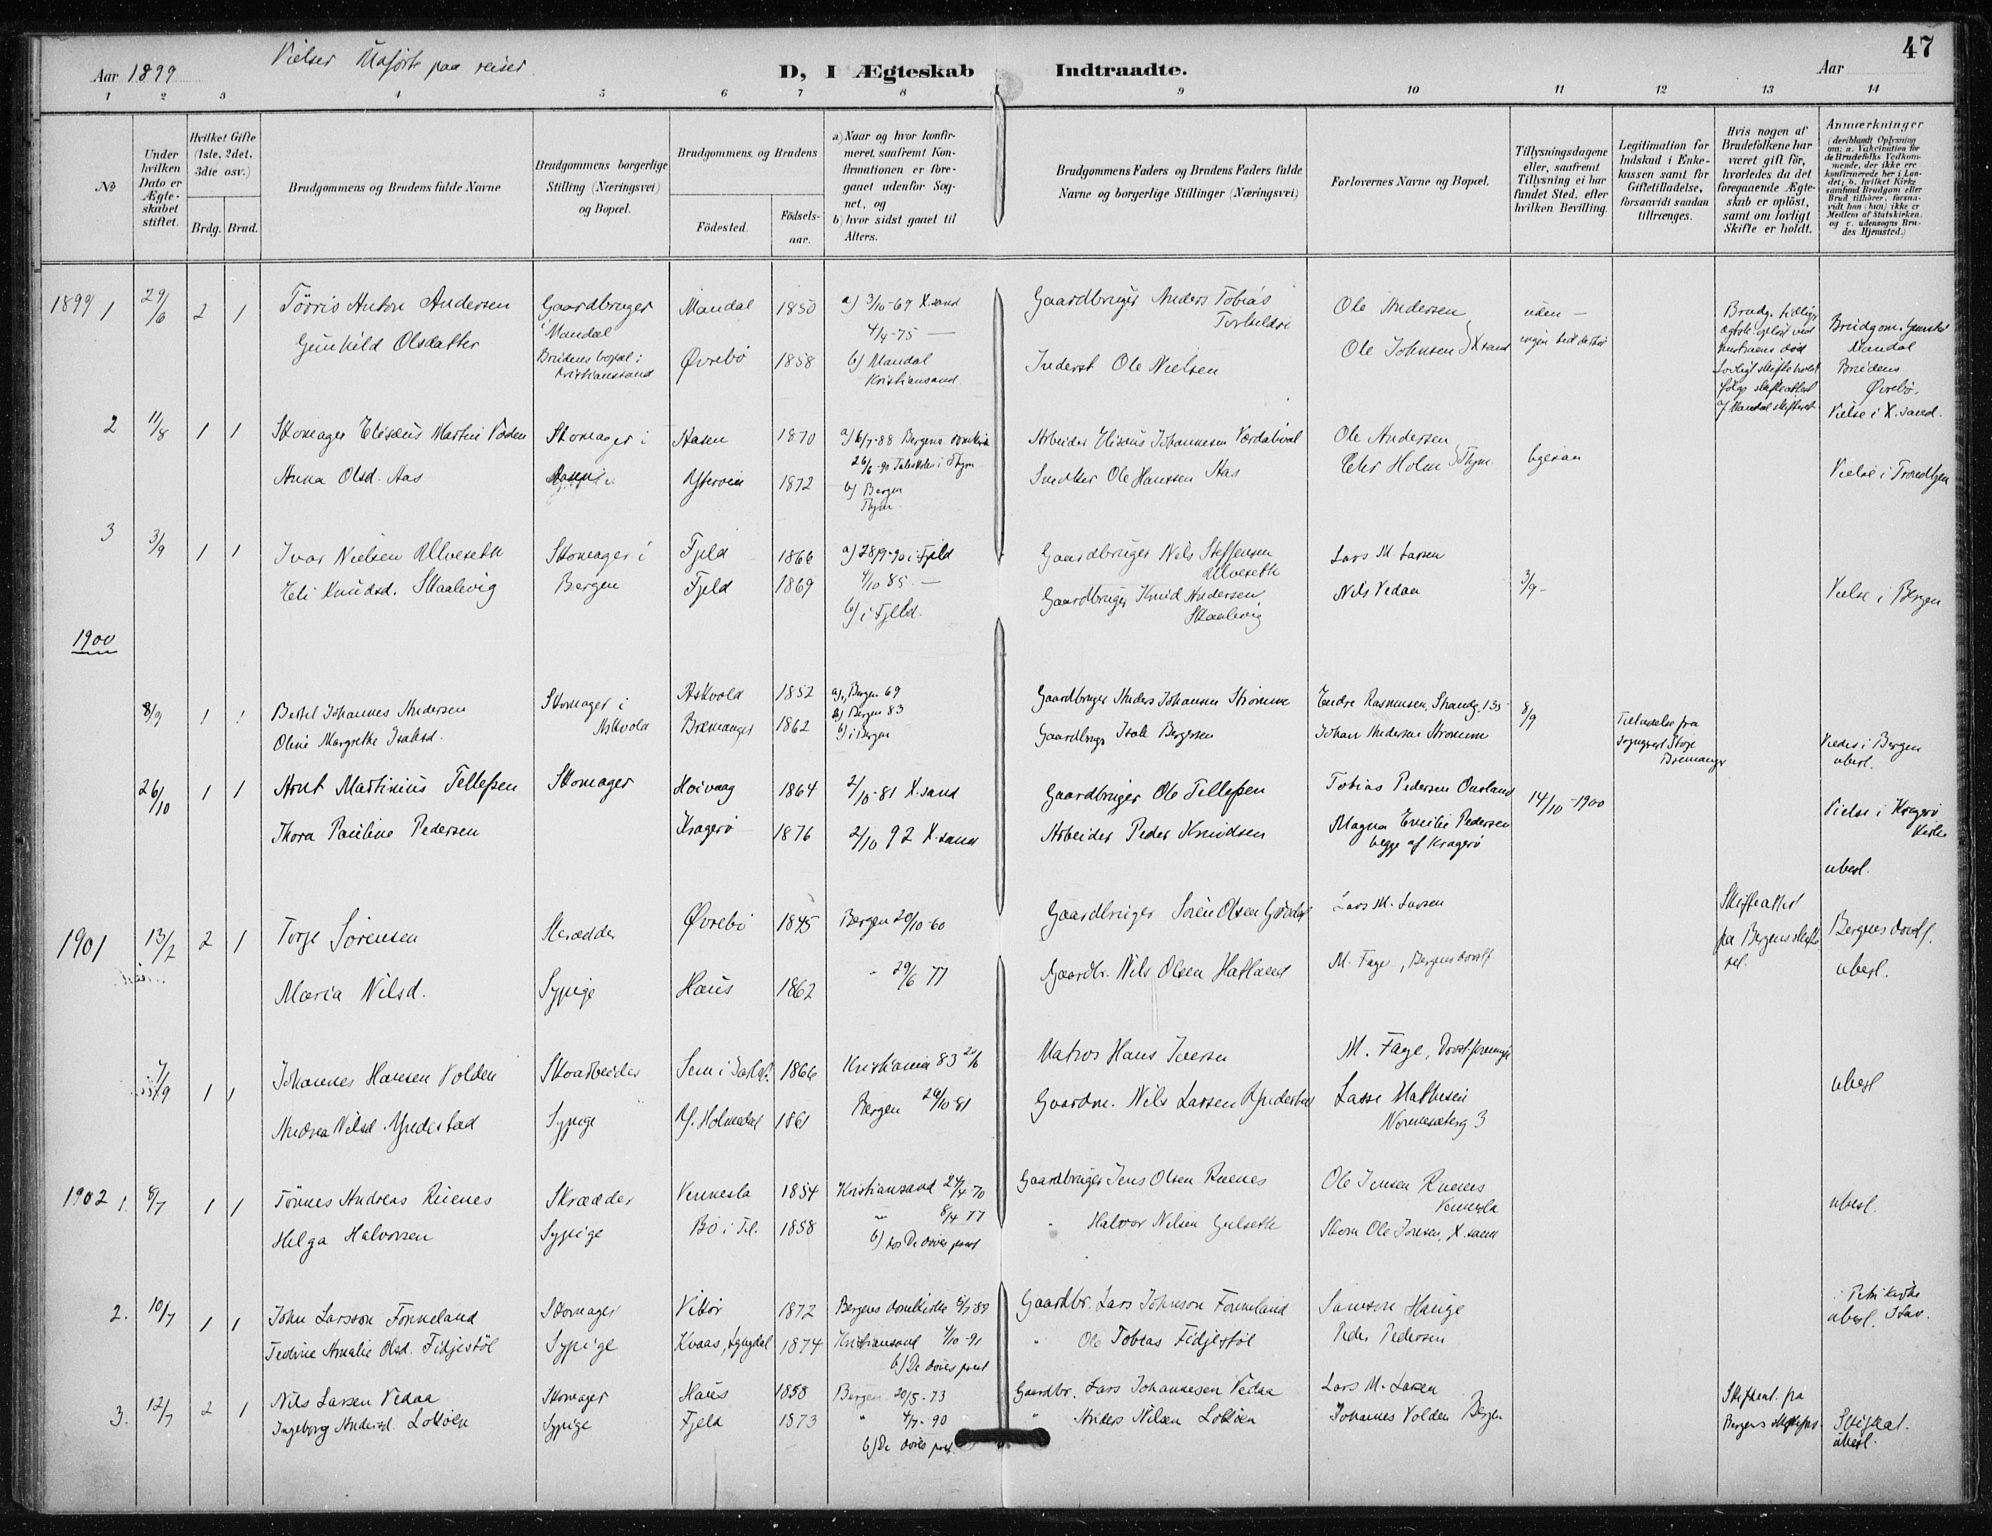 Aar 1899
Vielser paa reiser
D, I Ægteskab Indtraadte.
Aar
47
1 2 3 4 5 6 7 8 9 10 11 12 13 14
No
Under hvilken Dato er Ægteskabet stiftet.
Hvilket Gifte (1ste, 2det, 3die osv.)
Brdg. Brud.
Brudgommens og Brudens fulde Navne
Brudgommens borgerlige Stilling (Næringsvei) og Bopæl.
Brudgommens og Brudens
Fødested. Fødselsaar.
a) Naar og hvor konfirmeret, saafremt Konfirmationen er foregaaet udenfor Sognet, og
b) hvor sidst gaaet til Alters.
Brudgommens Faders og Brudens Faders fulde Navne og borgerlige Stillinger (Næringsvei)
Forlovernes Navne og Bopæl.
Tillysningsdagene eller, saafremt Tillysning ei har fundet Sted, efter hvilken Bevilling.
Legitimation for Indskud i Enkekassen samt for Giftetilladelse, forsaavidt saadan tiltrænges.
Hvis nogen af Brudefolkene har været gift før, hvorledes da det foregaaende Ægteskab er opløst, samt om lovligt Skifte er holdt.
Anmærkninger (deriblandt Oplysning om: a. Vakcination for de Brudefolks Vedkommende, der ikke ere konfirmerede her i Landet; b. hvilket Kirkesamfund Brudgom eller Brud tilhører, forsaavidt han (hun) ikke er Medlem af Statskirken, og c. udensogns Brudes Hjemsted.)
1899 1 29/6 2 1 Tørris Anton Andersen Gaardbruger i Mandal Mandal 1850 a) 3/10-69 X.sand Gaardbruger Anders Tobias Ole Andersen uden —
Gunhild Olsdatter Brudens bopæl: Kristianssand Øvrebø 1858 4/4-75 — b) Mandal Kristiansand Inderst Ole Nielsen Ole Johnsen X.sand
Brudgom. Mandal Brudens Øvrebø, Vielse i X.sand.
2 11/8 1 1 Skomager Eliseus Martin Voden Skomager i Aasen 1870 a) 6/7-88 Bergens domkirke Arbeider Eliseus Johannesen Ole Andersen ligesaa
Anna Olsd. Aas Ytterøen 1872 26/6-90 i Thjm b) Bergen Thjm. Snedker Ole Hanssen Aas Peter Holm Thjm. Vielse i Trondhjem
3 3/9 1 1 Ivar Nielsen Ulveseth Skomager i Fjeld 1866 a) 28/9-90 i Fjeld Gaardbruger Nils Steffensen Ulveseth Lars M. Larsen
Eli Knudsd. Skaalevig Bergen Fjeld 1869 4/10 85 — b) i Fjeld. Gaardbruger Knud Andersen Skaalevig Nils Vedaa 3/9- Vielse i Bergen
1900
8/9 1 1 Bertel Johannes Andersen Skomager i Askvold Askvold 1852 a) Bergen 69 Gaardbruger Anders Johannsen Strømme Endre Rasmussen, Strandg. 135 8/9 Tilladelse fra Sognepræst
Oline Margrethe Isaksd. Bremanger 1862 Bergen 83 b) i Bergen Gaardbrugr Isak Bergesen Johan Andersen Strømme Bremanger Viedes i Bergen ubesl.
26/10 1 1 Arnt Martinius Tellefsen Skomager Høivaag 1864 2/10-81 X.sand Gaardbruger Ole Tellefsen Tobias Pedersen 14/10-1900
Thora Pauline Pedersen Kragerø 1876 2/10 92 X.sand Arbeider Peder Knudsen Magna Emilie Pedersen begge af Kragerø Vielse i Kragerø Kirke ubesl.
1901 13/2 2 1 Torje Sørensen Skrædder Øvrebø 1845 Bergen 20/10-60 Gaardbruger Søren Olsen Lars M. Larsen Skifteattest fra Bergens skifteret. Bergens døvstf.
Maria Nilsd. Sypige Haus 1862 " 29/6 77 Gaardbr. Nils Olsen Hatland M. Fage, Bergens døvstf ubesl.
7/9 1 1 Johannes Hansen Volden Skoarbeider Sem i Jarlsb. 1866 Kristiania 83 Matros Hans Iversen M. Fage, Døvst.
Andrea Nilsd. Yndestad Sypige Y. Holmedal 1861 Bergen 29/10 81 Gaardm. Nils Larsen Yndestad Lasse Mathesen 3 ubesl
1902 1. 8/7 1 1 Tønnes Andreas Ruenes Skrædder Vennesla 1854 Kristiansand 24/4-70 Gaardbruger Jens Olsen Ruenes Ole Jensen Ruenes Vennesla ubesl.
Helga Halvorsen Sypige Bø i Tel. 1858 " 8/4 77 b) hos De døves præst " Halvor Nilsen Gulseth Skom Ole Jonsen, X.sand
2. 10/7 1 1 John Larsson Fonneland Skomager Vikør 1872 Bergens domkirke 6/7 89 Gaardbr. Lars Johnson Fonneland Samson Hauge Petrikirke ubesl. Stav.
Tedine Amalie Olsd. Fidjestøl Sypige Kvaas, Lyngdal 1874 Kristiansand 4/10-91 b) De døves præst " Ole Tobias Fidjestøl Peder Pedersen
3. 12/7 2 1 Nils Larsen Vedaa Skomager Haus 1858 Bergen 20/5-73 Gaardbr. Lars Johannesen Vedaa Lars M. Larsen Skifteat. fra
Ingeborg Andersd. Lokøen Sypige Fjeld 1873 " 4/7-90 b) De døves præst. " Anders Nilsen Lokøen Johannes Volden Bergen Bergens ubesl.